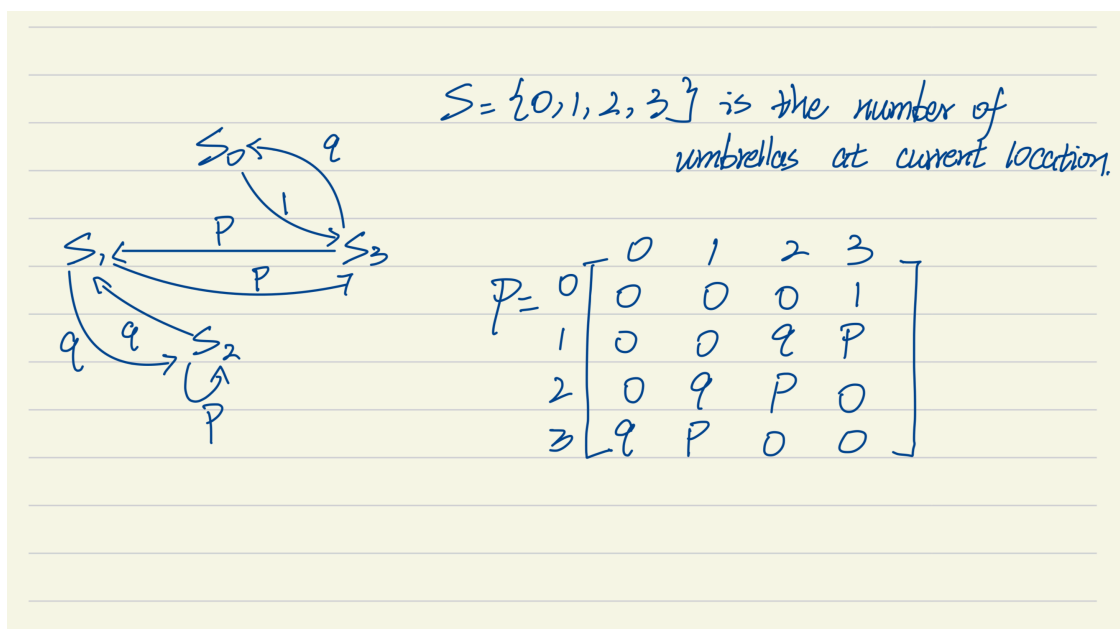 S = {0, 1, 2, 3} is the number of
umbrellas at current location.
S₀ q
1
S₁ P S₃
P
q q S₂
P
0 1 2 3
P = 0 [ 0 0 0 1 ]
1 [ 0 0 q P ]
2 [ 0 q P 0 ]
3 [ q P 0 0 ]